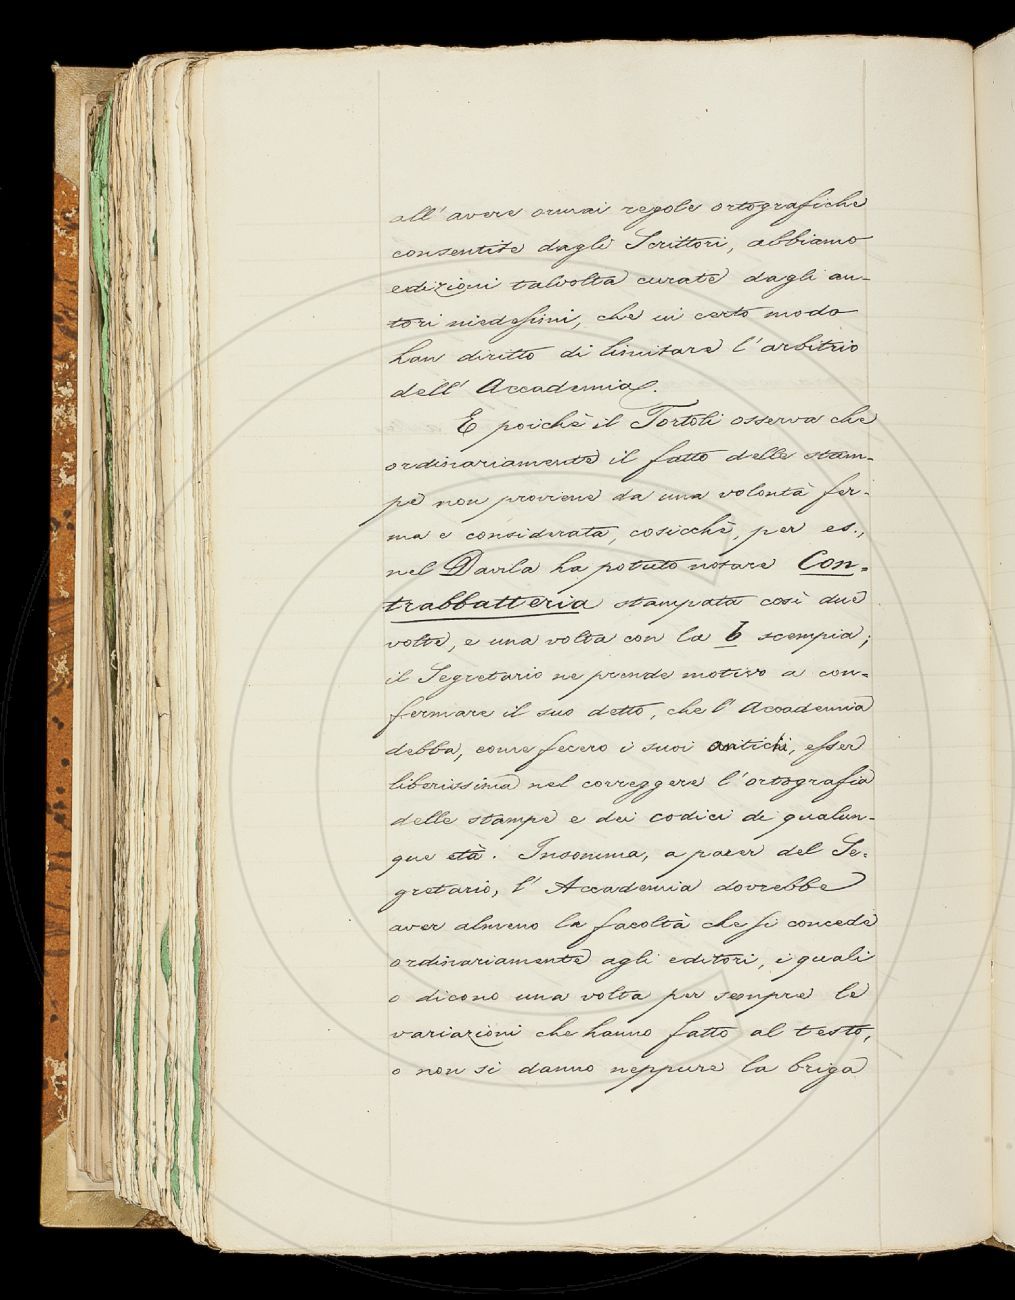 all' avere ormai regole ortografiche
consentite dagli Scrittori, abbiamo
edizioni talvolta curate dagli au-
tori medesimi, che in certo modo
han diritto di limitare l'arbitrio
dell' Accademia.
E poichè il Tortoli osserva che
ordinariamente il fatto delle stam-
pe non proviene da una volontà fer-
ma e considerata, cosicchè, per es.,
nel Davila ha potuto notare Con-
trabbatteria stampata così due
volte, e una volta con la b scempia;
il Segretario ne prende motivo a con-
fermare il suo detto, che l'Accademia
debba, come fecero i suoi antichi, esser
liberissima nel correggere l'ortografia
delle stampe e dei codici di qualun-
que età. Insomma, a parer del Se-
gretario, l' Accademia dovrebbe
aver almeno la facoltà che si concede
ordinariamente agli editori, i quali
o dicono una volta per sempre le
variazioni che hanno fatto al testo,
o non si danno neppure la briga